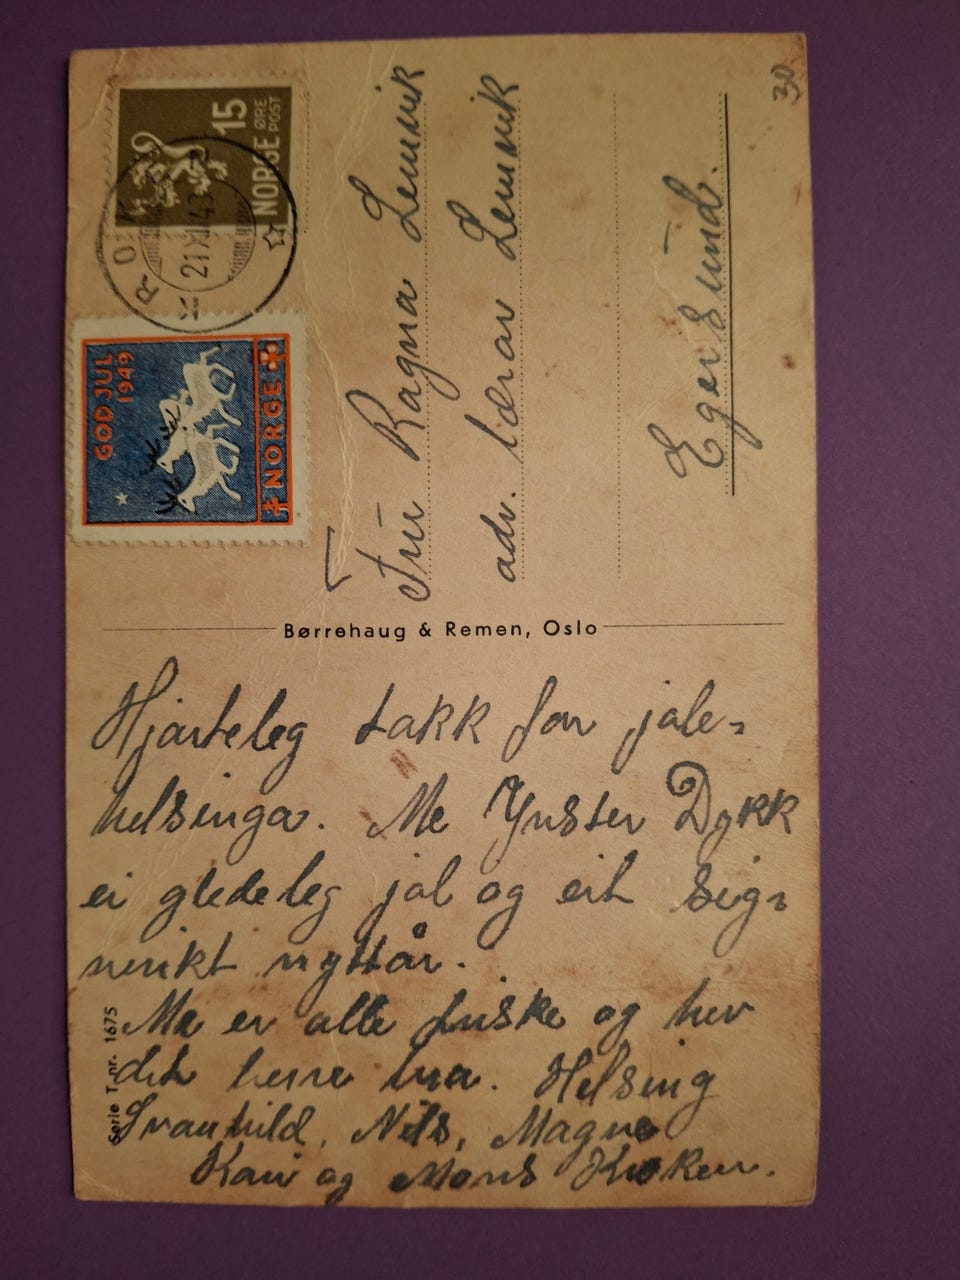 NORGE
15 ØRE
POST
21 XII 43
GOD JUL
1949
NORGE
30
Frú Ragna Lemvik
adr. lærar Lemvik
Egersund.
Børrehaug & Remen, Oslo
Hjarteleg takk for jole-
helsinga. Me Ynsker Dykk
ei gledeleg jol og eit sig-
nerikt nyttår.
Me er alle friske og hev
det berre bra. Helsing
Svanhild, Nils, Magne
Kari og Mons
Serie T. nr. 1675